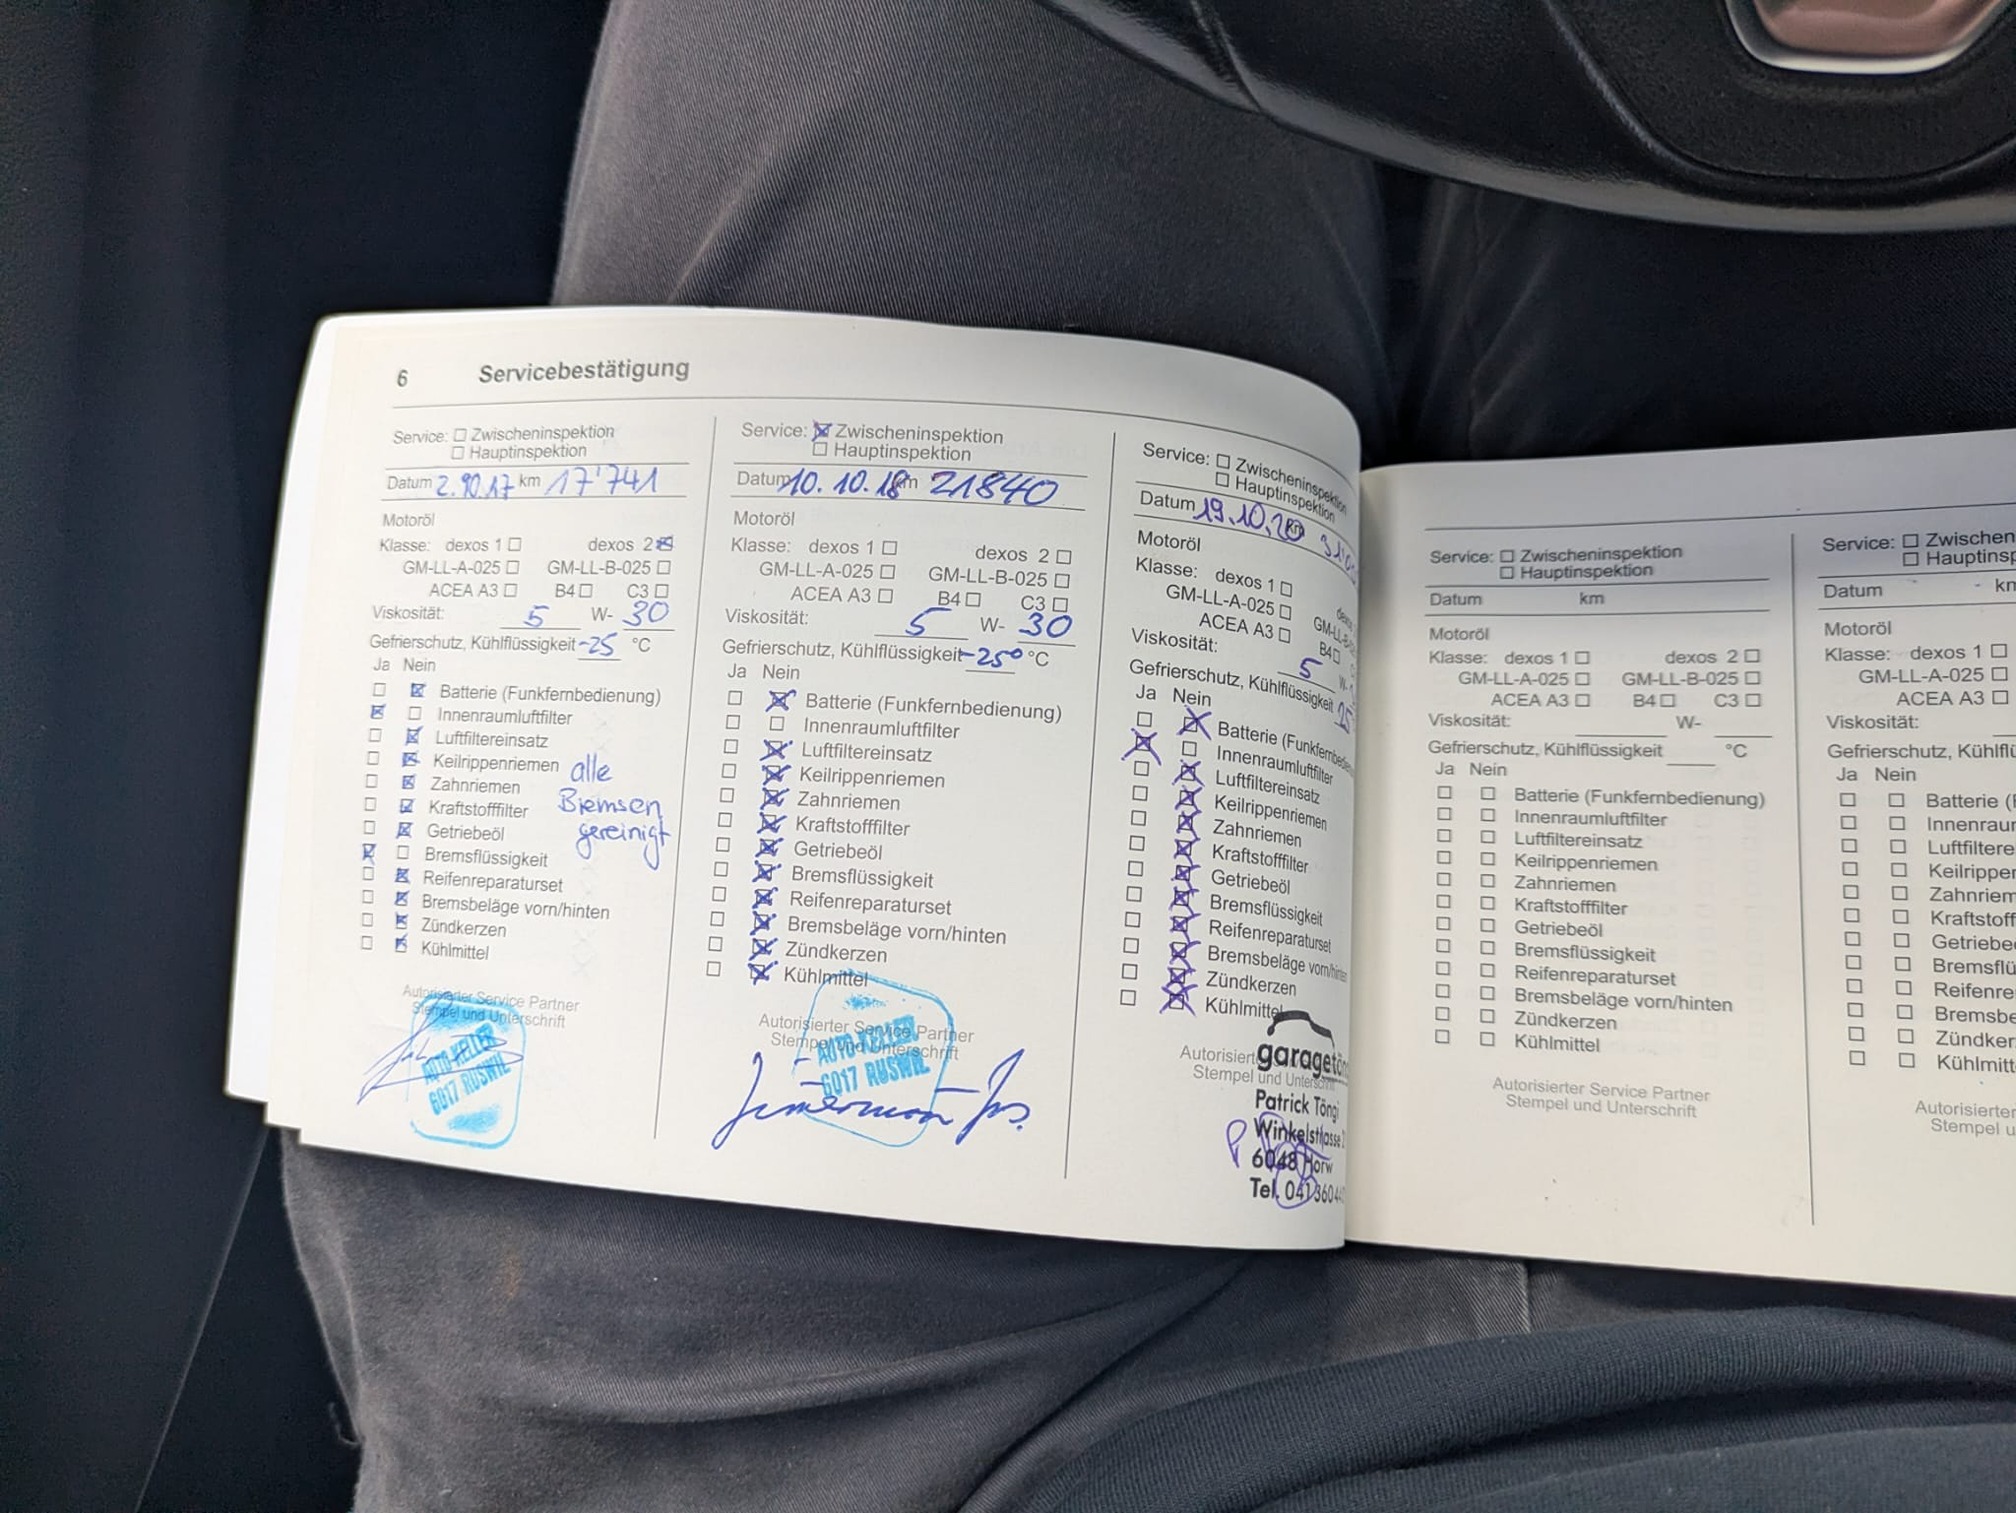 6 Servicebestätigung
Service: Zwischeninspektion
Hauptinspektion
Datum 2.10.17 km 17'741
Motoröl
Klasse: dexos 1 dexos 2
GM-LL-A-025 GM-LL-B-025
ACEA A3 B4 C3
Viskosität: 5 W- 30
Gefrierschutz, Kühlflüssigkeit -25 °C
Ja Nein
Batterie (Funkfernbedienung)
Innenraumluftfilter
Luftfiltereinsatz
Keilrippenriemen
Zahnriemen
Kraftstofffilter
Getriebeöl
Bremsflüssigkeit
Reifenreparaturset
Bremsbeläge vorn/hinten
Zündkerzen
Kühlmittel
alle
Bremsen
gereinigt
Autorisierter Service Partner
Stempel und Unterschrift
AUTO-KELLER
6017 RUSWIL
Service: Zwischeninspektion
Hauptinspektion
Datum 10.10.18 km 21840
Motoröl
Klasse: dexos 1 dexos 2
GM-LL-A-025 GM-LL-B-025
ACEA A3 B4 C3
Viskosität: 5 W- 30
Gefrierschutz, Kühlflüssigkeit -25° °C
Ja Nein
Batterie (Funkfernbedienung)
Innenraumluftfilter
Luftfiltereinsatz
Keilrippenriemen
Zahnriemen
Kraftstofffilter
Getriebeöl
Bremsflüssigkeit
Reifenreparaturset
Bremsbeläge vorn/hinten
Zündkerzen
Kühlmittel
Autorisierter Service Partner
Stempel und Unterschrift
AUTO-KELLER
6017 RUSWIL
Service: Zwischeninspektion
Hauptinspektion
Datum 19.10.20 km
Motoröl
Klasse: dexos 1
GM-LL-A-025 GM-LL-B
ACEA A3 B4
Viskosität: 5 W-
Gefrierschutz, Kühlflüssigkeit 25
Ja Nein
Batterie (Funkfernbedie
Innenraumluftfilter
Luftfiltereinsatz
Keilrippenriemen
Zahnriemen
Kraftstofffilter
Getriebeöl
Bremsflüssigkeit
Reifenreparaturset
Bremsbeläge vorn/hinten
Zündkerzen
Kühlmittel
Autorisiert
Stempel und Unterschrift
garagetön
Patrick Töngi
Winkelstrasse
6048 Horw
Tel. 041 360 4
Service: Zwischeninspektion
Hauptinspektion
Datum km
Motoröl
Klasse: dexos 1 dexos 2
GM-LL-A-025 GM-LL-B-025
ACEA A3 B4 C3
Viskosität: W-
Gefrierschutz, Kühlflüssigkeit °C
Ja Nein
Batterie (Funkfernbedienung)
Innenraumluftfilter
Luftfiltereinsatz
Keilrippenriemen
Zahnriemen
Kraftstofffilter
Getriebeöl
Bremsflüssigkeit
Reifenreparaturset
Bremsbeläge vorn/hinten
Zündkerzen
Kühlmittel
Autorisierter Service Partner
Stempel und Unterschrift
Service: Zwischen
Hauptinsp
Datum km
Motoröl
Klasse: dexos 1
GM-LL-A-025
ACEA A3
Viskosität:
Gefrierschutz, Kühlflü
Ja Nein
Batterie (F
Innenraur
Luftfiltere
Keilripper
Zahnriem
Kraftstoff
Getriebe
Bremsflü
Reifenre
Bremsbe
Zündker
Kühlmitt
Autorisierter
Stempel u